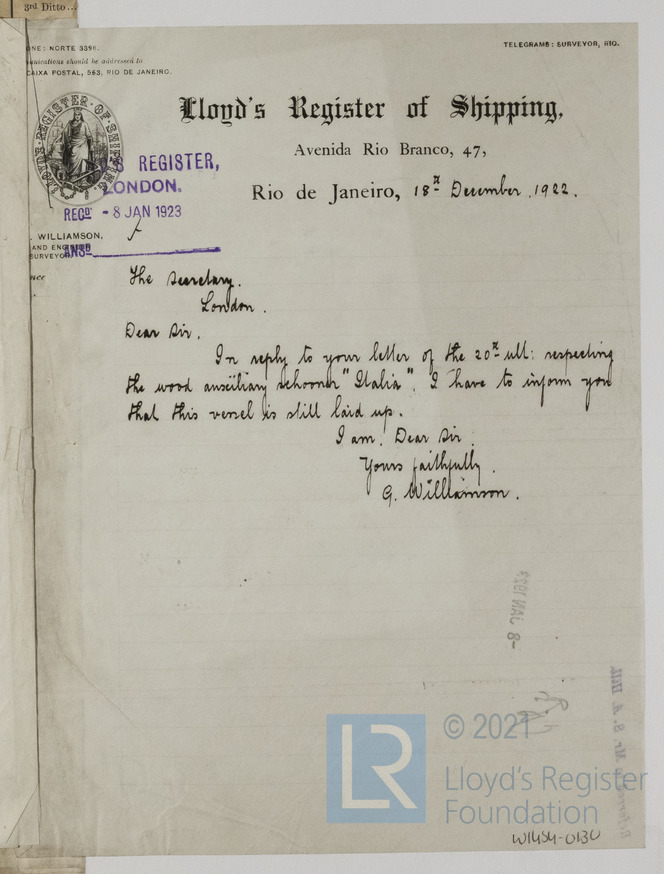 3rd Ditto...
ONE: NORTE 3396.
TELEGRAMS: SURVEYOR, RIO.
unications should be addressed to
CAIXA POSTAL, 563, RIO DE JANEIRO.
Lloyd's Register of Shipping,
LLOYDS REGISTER OF SHIPPING
Avenida Rio Branco, 47,
Rio de Janeiro, 18th December. 1922.
'S REGISTER,
LONDON.
RECD - 8 JAN 1923
. WILLIAMSON,
AND
SURVEYOR
ANSD
The Secretary.
London.
Dear Sir.
In reply to your letter of the 20th ult: respecting
the wood auxiliary schooner "Italia". I have to inform you
that this vessel is still laid up.
I am. Dear Sir.
Yours faithfully.
G. Williamson.
- 8 JAN 1923
LR
© 2021
Lloyd's Register
Foundation
W1454-0130